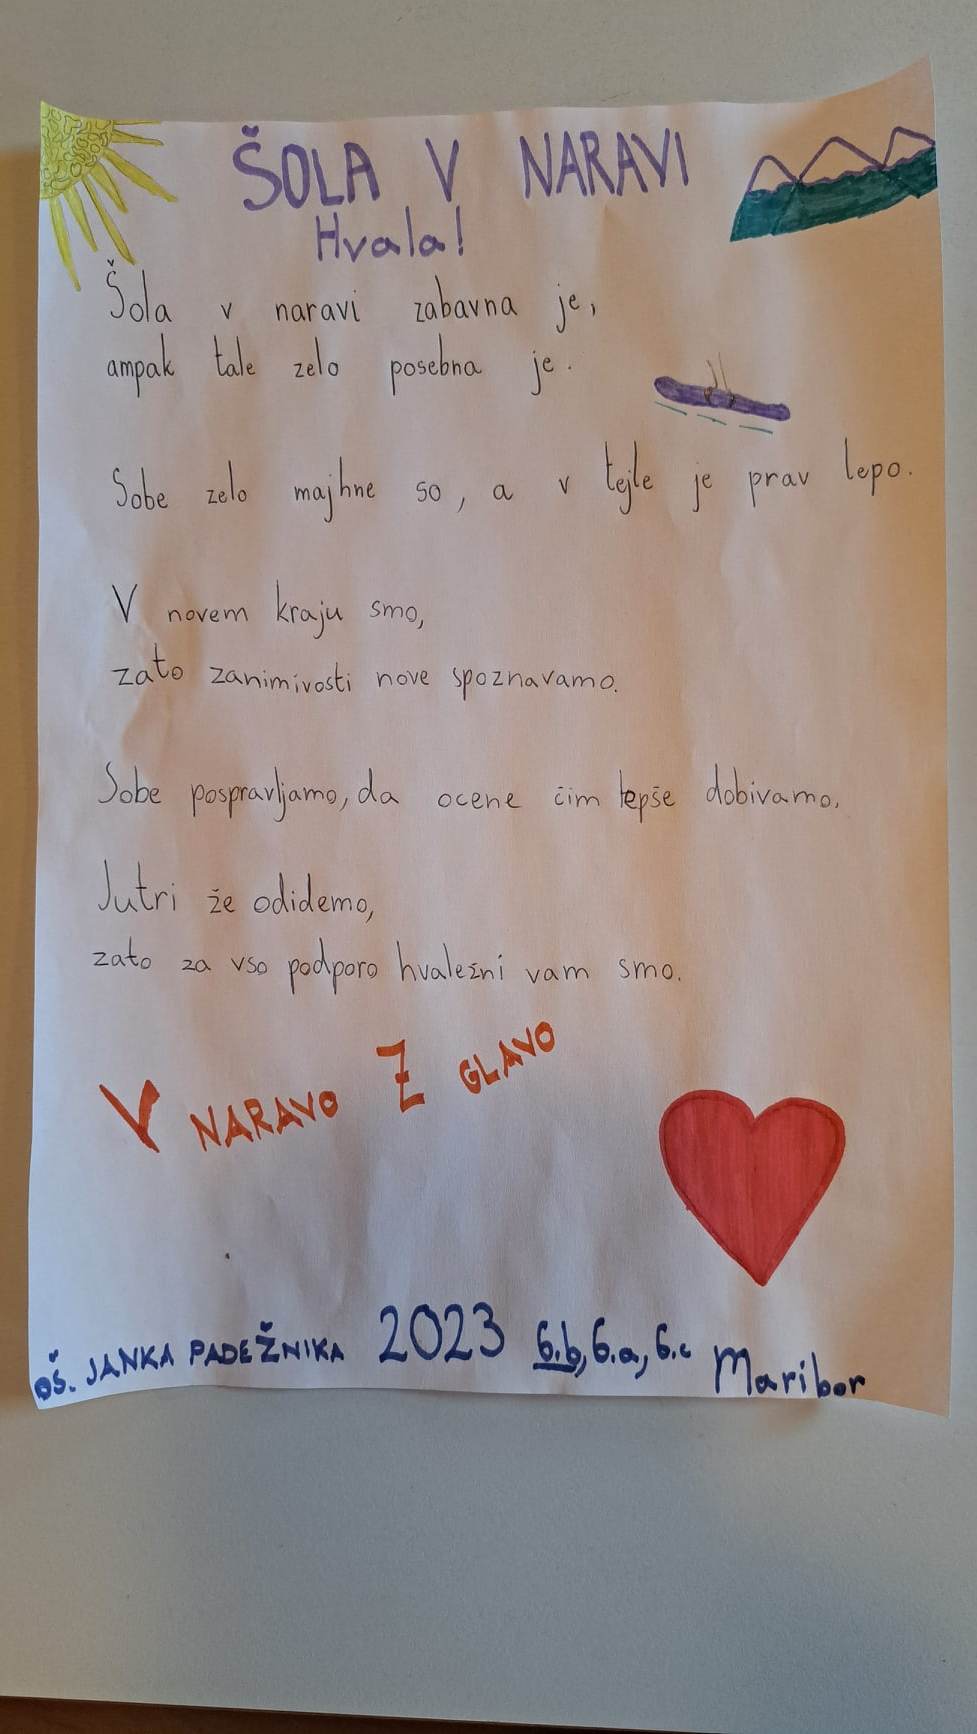 ŠOLA V NARAVI
Hvala!
Šola v naravi zabavna je,
ampak tale zelo posebna je.
Sobe zelo majhne so, a v tejle je prav lepo.
V novem kraju smo,
zato zanimivosti nove spoznavamo.
Sobe pospravljamo, da ocene čim lepše dobivamo.
Jutri že odidemo,
zato za vso podporo hvaležni vam smo.
V NARAVO Z GLAVO
OŠ. JANKA PADEŽNIKA 2023 6.b, 6.a, 6.c Maribor